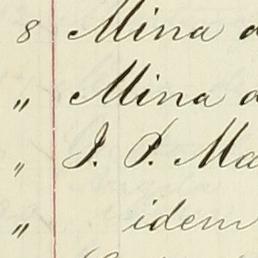 8 Mina
" Mina
" J. P. Ma
" idem